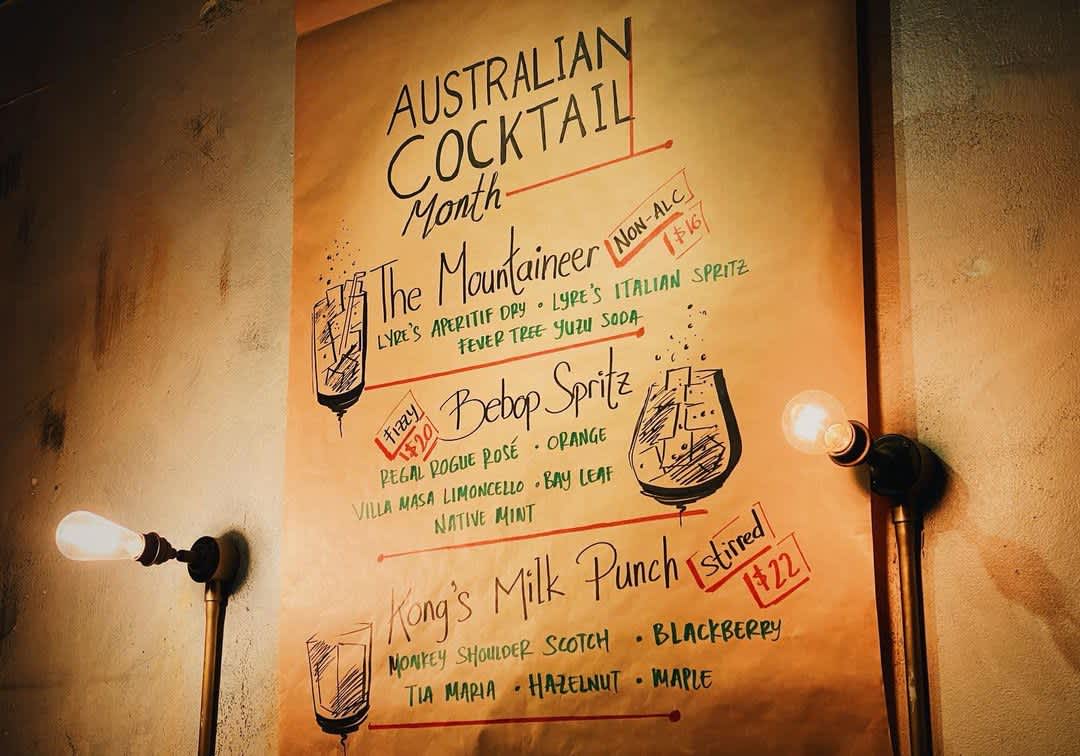 AUSTRALIAN
COCKTAIL
Month
The Mountaineer NON-ALC
$16
LYRE'S APERITIF DRY • LYRE'S ITALIAN SPRITZ
FEVER TREE YUZU SODA
FIZZY
$20
Bebop Spritz
REGAL ROGUE ROSÉ • ORANGE
VILLA MASA LIMONCELLO • BAY LEAF
NATIVE MINT
Kong's Milk Punch stirred
$22
MONKEY SHOULDER SCOTCH • BLACKBERRY
TIA MARIA • HAZELNUT • MAPLE